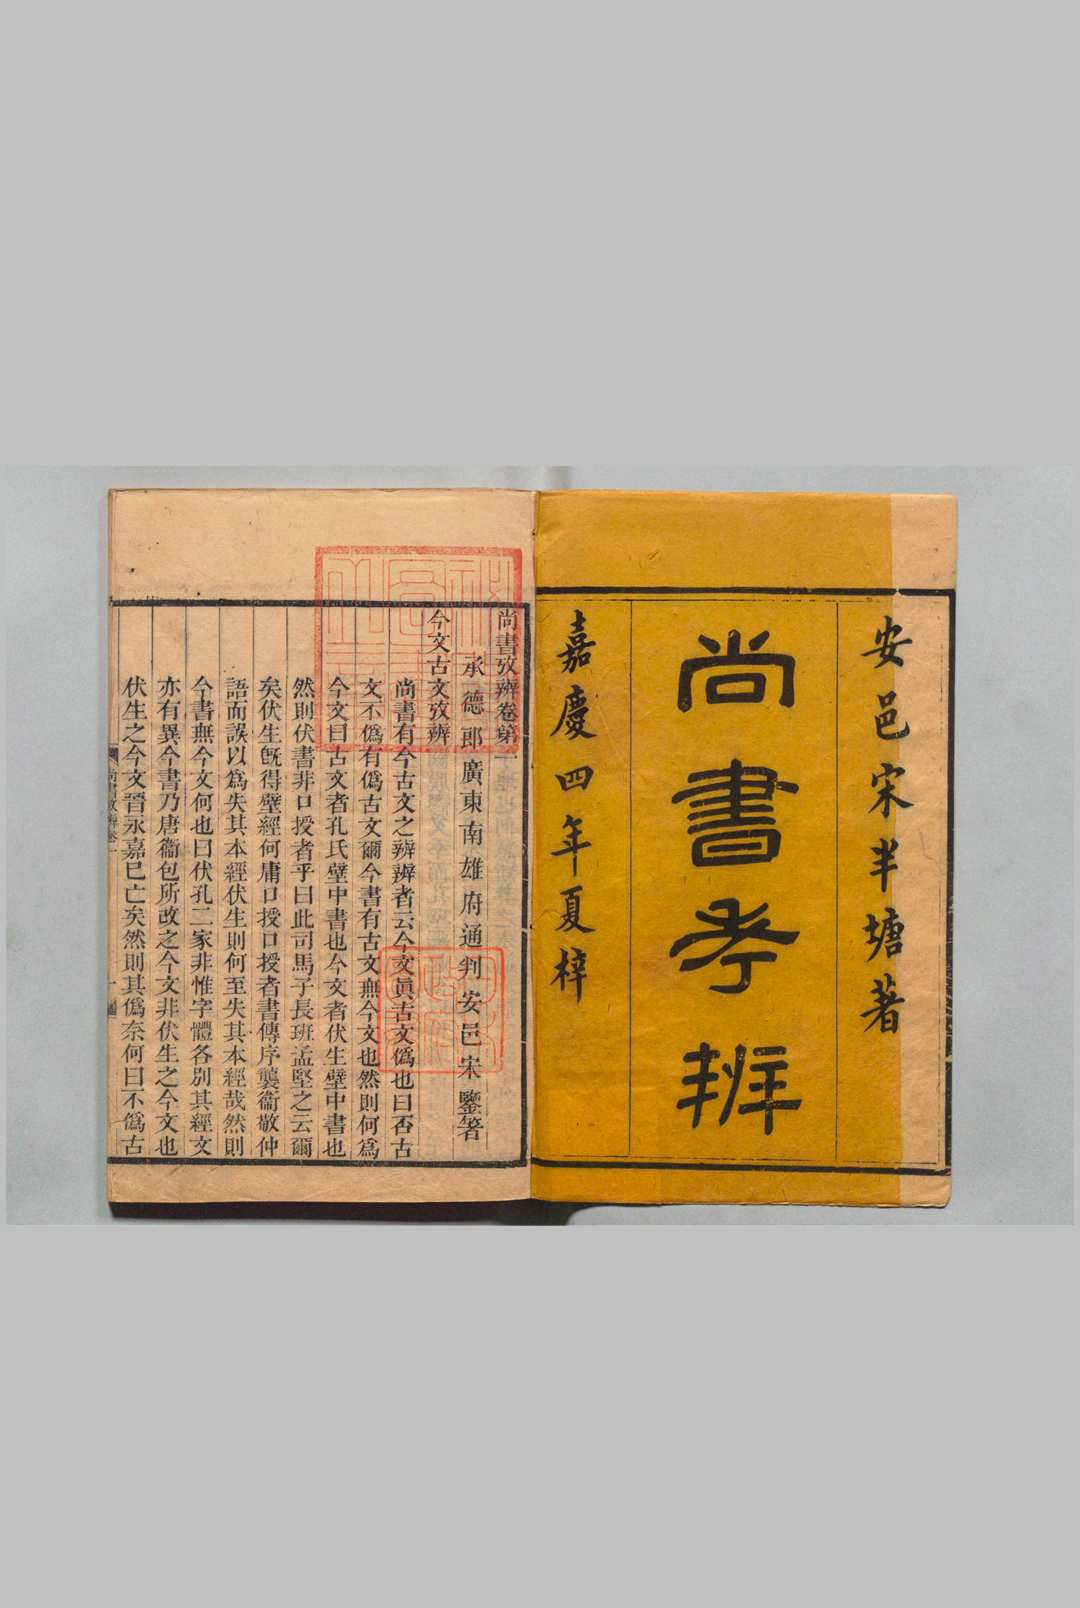 安邑宋半塘著
尚書考辨
嘉慶四年夏梓
尚書攷辨卷第一
承德郎廣東南雄府通判安邑宋鑒箸
今文古文攷辨
尚書有今古文之辨辨者云今文眞古文僞也曰否古
文不僞有僞古文爾今書有古文無今文也然則何爲
今文曰古文者孔氏壁中書也今文者伏生壁中書也
然則伏書非口授者乎曰此司馬子長班孟堅之云爾
矣伏生旣得壁經何庸口授口授者書傳序襲衞敬仲
語而誤以爲失其本經伏生則何至失其本經哉然則
今書無今文何也曰伏孔二家非惟字體各别其經文
亦有異今書乃唐衞包所改之今文非伏生之今文也
伏生之今文晉永嘉已亡矣然則其僞奈何曰不僞古